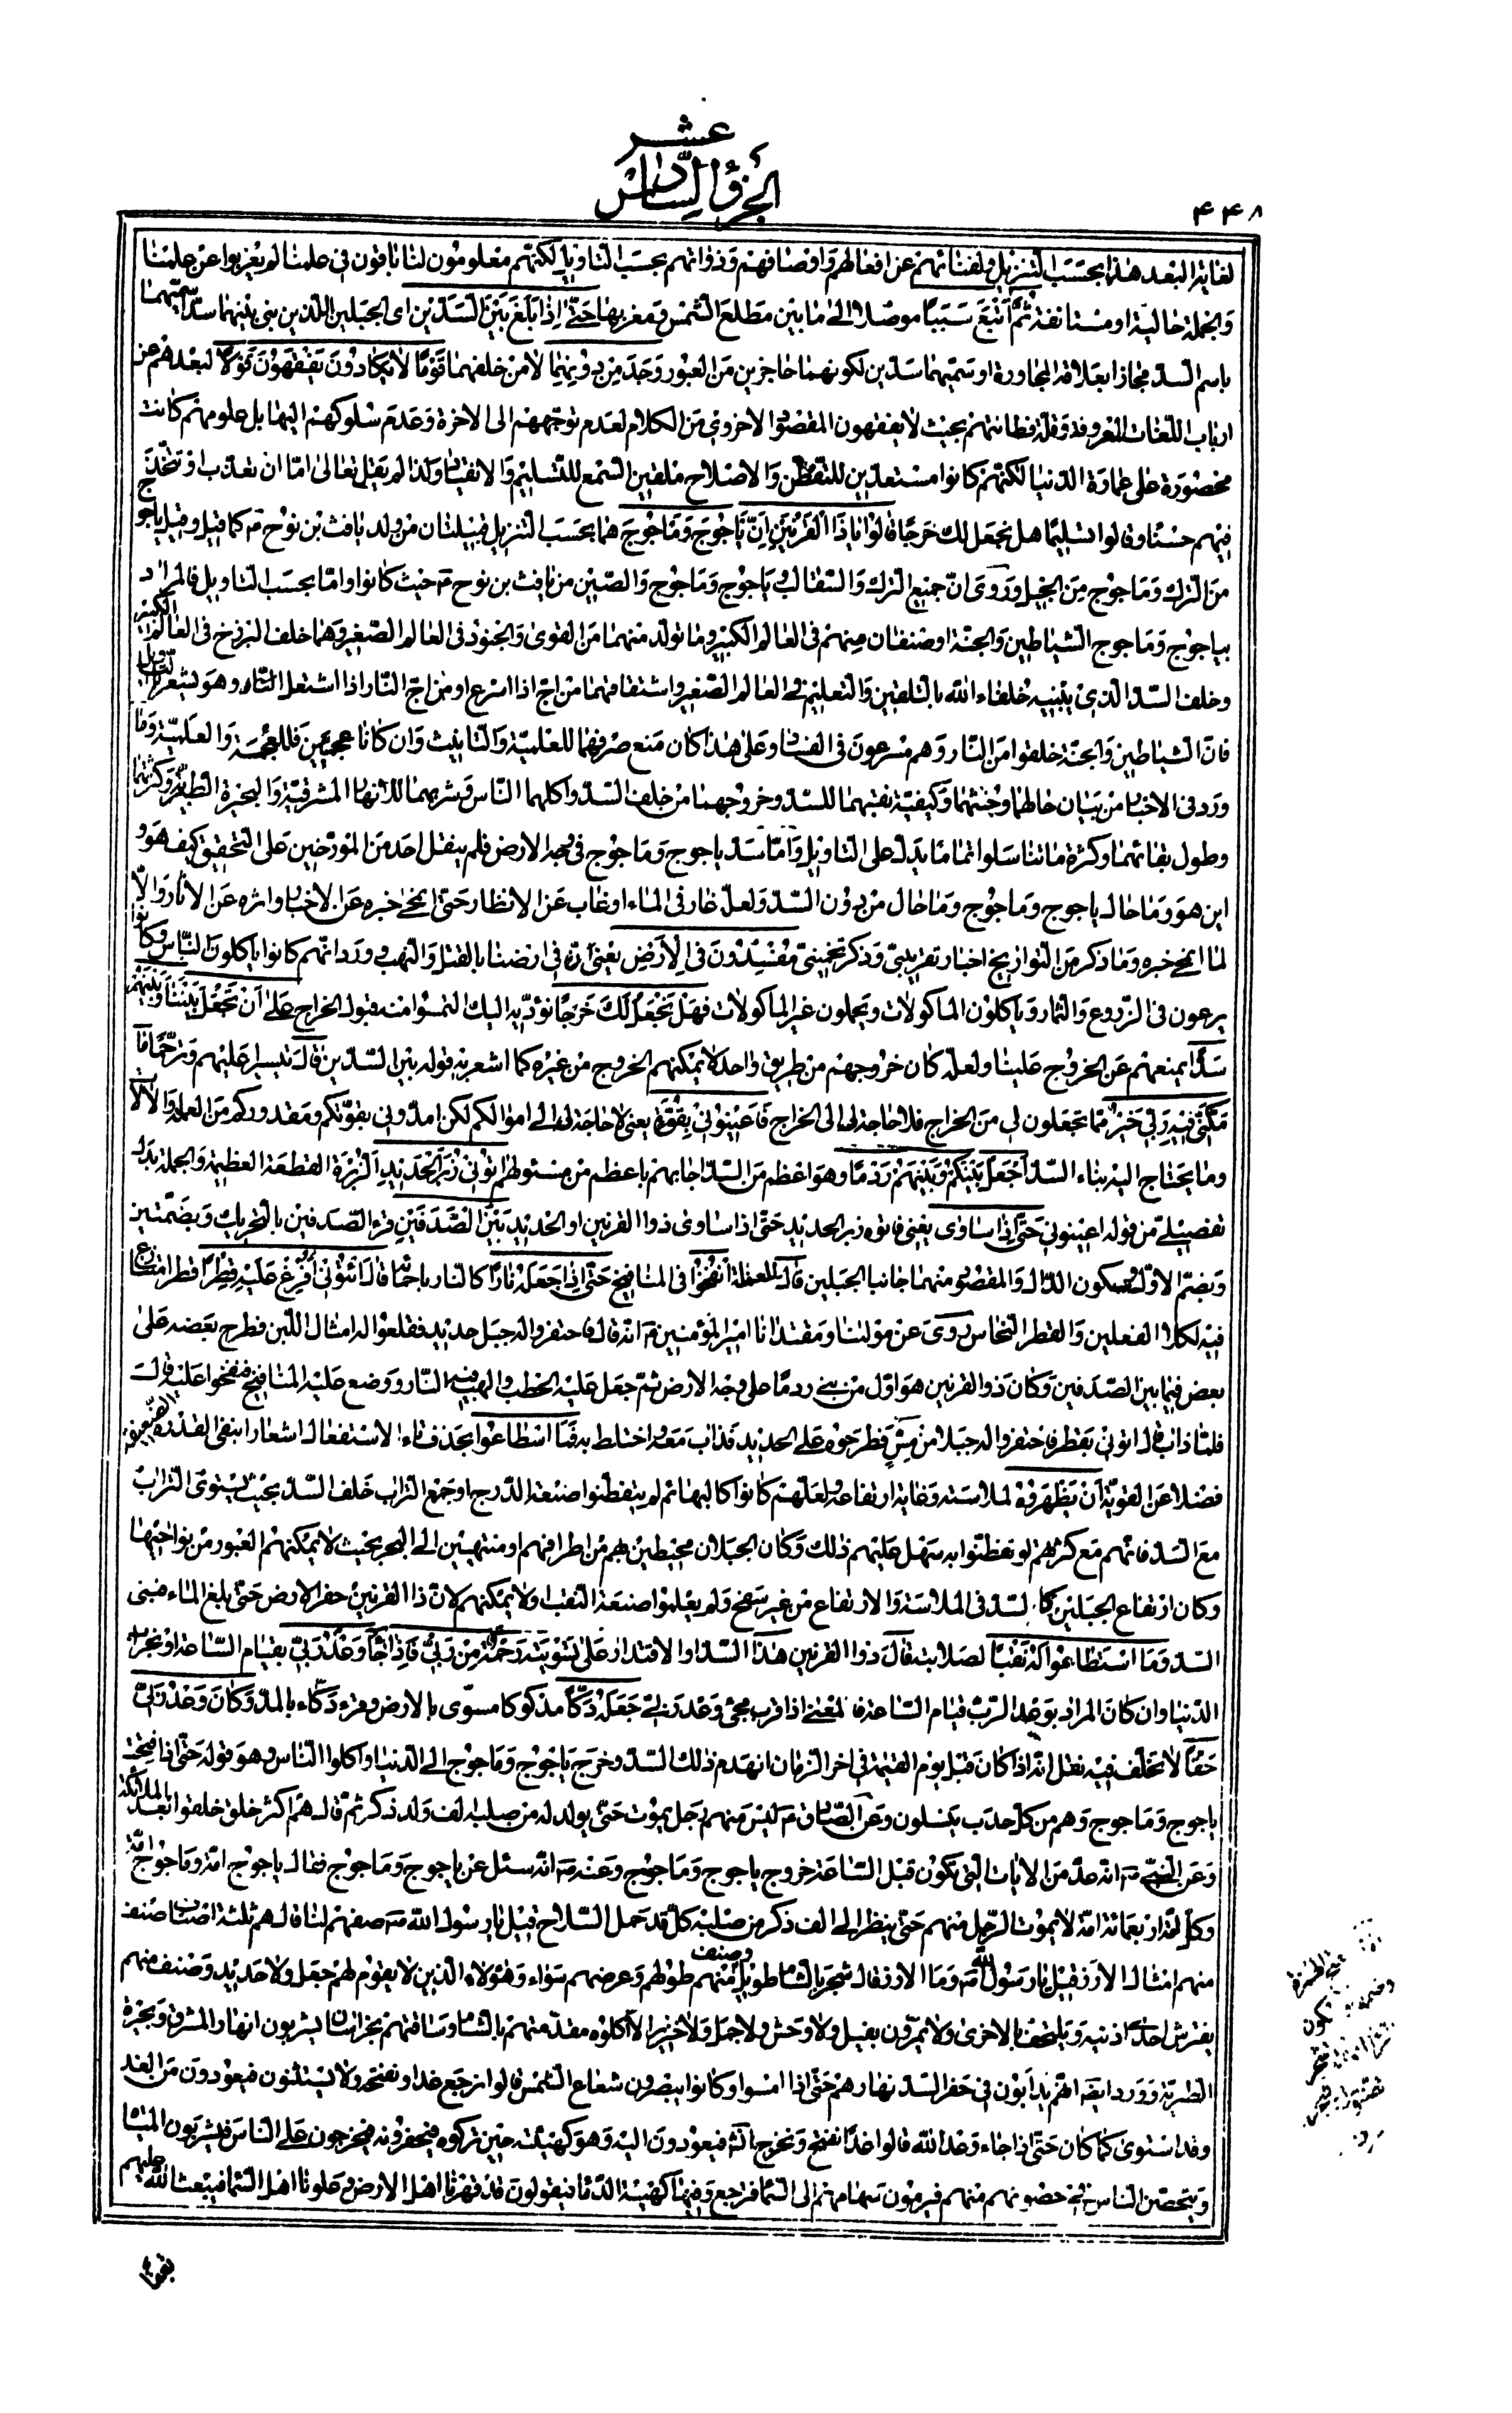 عشر
الجزؤ السادس
٤٤٨
لغاية البعد هذا بحسب التنزيل ولفنائهم عن افعالهم واوصافهم وذواتهم بحسب التاويل لكنهم معلومون لنا باقون فى علمنا لم يعزبوا عن علمنا
والجملة حالية او مستانفة ثم اتبع سببا موصلا الى ما بين مطلع الشمس ومغربها حتى اذا بلغ بين السدين اى الجبلين اللذين بنى بينهما سدا سميتهما
باسم السد مجازا بعلاقة المجاورة او سميتهما سدين لكونهما حاجزين من العبور وجد من دونهما لا من خلفهما قوما لا يكادون يفقهون قولا لبعدهم عن
ارباب اللغات المعروفة وقلة فطانتهم بحيث لا يفقهون المقصود الاخروى من الكلام لعدم توجههم الى الاخرة وعدم سلوكهم اليها بل علومهم كانت
محصورة على عمارة الدنيا لكنهم كانوا مستعدين للتفطن والاصلاح ملقين السمع للتسليم والانقياد ولذا لم يقل تعالى اما ان تعذب او تتخذ
فيهم حسنا وقالوا تسليما هل نجعل لك خرجا قالوا يا ذا القرنين ان ياجوج وماجوج هما بحسب التنزيل قبيلتان من ولد يافث بن نوح ع كما قيل وقيل ياجوج
من الترك وماجوج من الجيل وروى ان جميع الترك والسقالب وياجوج وماجوج والصين من يافث بن نوح ع حيث كانوا واما بحسب التاويل فالمراد
بياجوج وماجوج الشياطين والجنة او صنفان منهم فى العالم الكبير وما تولد منهما من القوى والجنود فى العالم الصغير وهما خلف البرزخ فى العالم الكبير
وخلف السد الذى يبنيه خلفاء الله بالتلقين والتعليم فى العالم الصغير واشتقاقهما من اجّ اذا اسرع او من اجّ النار اذا اشتعل النار وهو يشعر بالتاويل
فان الشياطين والجنة خلقوا من النار وهم مسرعون فى الفساد وعلى هذا كان منع صرفهما للعلمية والتانيث وان كانا عجميين فللعجمة والعلمية وما
ورد فى الاخبار من بيان حالهما وجثتهما وكيفية نقبهما للسد وخروجهما من خلف السد واكلهما الناس وشربهما للانهار المشرقية والبحيرة الطبرية وكثرتهما
وطول بقائهما وكثرة ما تناسلوا تماما يدل على التاويل واما سد ياجوج وماجوج فى وجه الارض فلم ينقل احد من المورخين على التحقيق كيف هو و
اين هو وما حال ياجوج وماجوج وما حال من دون السد ولعله غار فى الماء او غاب عن الانظار حتى انمحى خبره عن الاخبار واثره عن الاثار والا
لما انمحى خبره وما ذكر من التواريخ اخبار تقريبى وذكر تخمينى مفسدون فى الارض يعنى فى ارضنا بالقتل والنهب ورد انهم كانوا ياكلون الناس وكانوا
يرعون فى الزروع والثمار وياكلون الماكولات ويحملون غير الماكولات فهل نجعل لك خرجا نؤديه اليك التمسوا منه قبول الخراج على ان تجعل بيننا وبينهم
سدا يمنعهم عن الخروج علينا ولعله كان خروجهم من طريق واحد لا يمكنهم الخروج من غيره كما اشعر به قوله بين السدين قال تيسيرا عليهم وترحما ما
مكنى فيه ربى خير مما تجعلون لى من الخراج فلا حاجة لى الى الخراج فاعينونى بقوة يعنى لا حاجة لى الى اموالكم لكن امدونى بقوتكم ومقدوركم من العملة والالات
وما يحتاج اليه بناء السد اجعل بينكم وبينهم ردما وهو اعظم من السد اجابهم باعظم من مسئولهم اتونى زبر الحديد الزبرة القطعة العظيمة والجملة بدل
تفصيلى من قوله اعينونى حتى اذا ساوى يعنى فاتوه زبر الحديد حتى اذا ساوى ذو القرنين او الحديد بين الصدفين قرء الصدفين بالتحريك وبضمتين
وبضم الاول وسكون الدال والمقصود منهما جانبا الجبلين قال للعملة انفخوا فى المنافيخ حتى اذا جعله نارا كالنار باحمائه قال اتونى افرغ عليه قطرا قطرا متنازع
فيه لكلا الفعلين والقطر النحاس روى عن مولنا ومقتدانا امير المؤمنين ع انه قال فاحتفروا له جبل حديد فقلعوا له امثال اللبن فطرح بعضه على
بعض فيما بين الصدفين وكان ذو القرنين هو اول من بنى ردما على وجه الارض ثم جعل عليه الحطب والهب فيه النار ووضع عليه المنافيخ فنفخوا عليه قال
فلما ذاب قال اتونى بقطر فاحتفروا له جبلا من مس فطرحوه على الحديد فذاب معه واختلط به فما اسطاعوا بحذف تاء الاستفعال اشعارا بنفى القدرة الضعيفة
فضلا عن القوية ان يظهروه لملاسته وغاية ارتفاعه ولعلهم كانوا كالبهائم لم يتفطنوا صنعة الدرج او جمع التراب خلف السد بحيث يستوى التراب
مع السد فانهم مع كثرتهم لو تفطنوا به سهل عليهم ذلك وكان الجبلان محيطين بهم من اطرافهم او منتهيين الى البحر بحيث لا يمكنهم العبور من نواحيها
وكان ارتفاع الجبلين كالسد فى الملاسة والارتفاع من غير سفح ولم يعلموا صنعة النقب ولا يمكنهم لان ذا القرنين حفر الارض حتى بلغ الماء فبنى
السد وما استطاعوا له نقبا لصلابته قال ذو القرنين هذا السد او الاقتدار على تسويته رحمة من ربى فاذا جاء وعد ربى بقيام الساعة او بخراب
الدنيا وان كان المراد بوعد الرب قيام الساعة فالمعنى اذا قرب مجئ وعد ربى جعله دكا مدكوكا مسوى بالارض وقرء دكاء بالمد وكان وعد ربى
حقا لا يخلف فيه نقل انه اذا كان قبل يوم القيمة فى اخر الزمان انهدم ذلك السد وخرج ياجوج وماجوج الى الدنيا واكلوا الناس وهو قوله حتى اذا فتحت
ياجوج وماجوج وهم من كل حدب ينسلون وعن الصادق ع ليس منهم رجل يموت حتى يولد له من صلبه الف ولد ذكر ثم قال هم اكثر خلق خلقوا بعد الملائكة
وعن النبى ص انه عد من الايات التى تكون قبل الساعة خروج ياجوج وماجوج وعنه ص انه سئل عن ياجوج وماجوج فقال ياجوج امة وماجوج امة
وكل امة اربعمائة امة لا يموت الرجل منهم حتى ينظر الى الف ذكر من صلبه كل قد حمل السلاح قيل يا رسول الله ص صفهم لنا قال هم ثلثة اصناف صنف
منهم امثال الارز قيل يا رسول الله ص وما الارز قال شجر بالشام طويل وصنف منهم طولهم وعرضهم سواء وهؤلاء الذين لا يقوم لهم جبل ولا حديد وصنف منهم
يفترش احدهم اذنيه ويلتحف بالاخرى ولا يمرون بفيل ولا وحش ولا جمل ولا خنزير الا اكلوه مقدمتهم بالشام وساقتهم بخراسان يشربون انهار المشرق وبحيرة
الطبرية وورد ايضا انهم يدابون فى حفر السد نهارهم حتى اذا امسوا وكانوا يبصرون شعاع الشمس قالوا نرجع غدا ونفتحه ولا يستثنون فيعودون من الغد
وقد استوى كما كان حتى اذا جاء وعد الله قالوا غدا نفتح ونخرج انشاء الله فيعودون اليه وهو كهيئته حين تركوه فيحفرونه فيخرجون على الناس فيشربون المياه
ويتحصن الناس فى حصونهم منهم فيرمون سهامهم الى السماء فترجع وفيها كهيئة الدماء فيقولون قد قهرنا اهل الارض وعلونا اهل السماء فيبعث الله عليهم